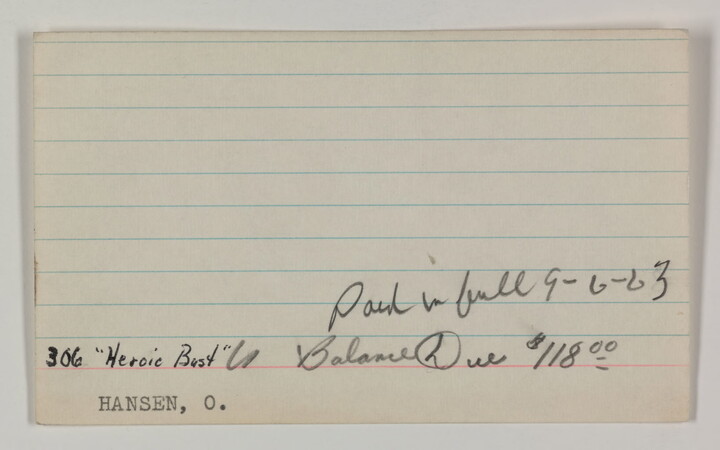 Paid in full 9-6-63
306 "Heroic Bust" Balance Due $118.00
HANSEN, O.